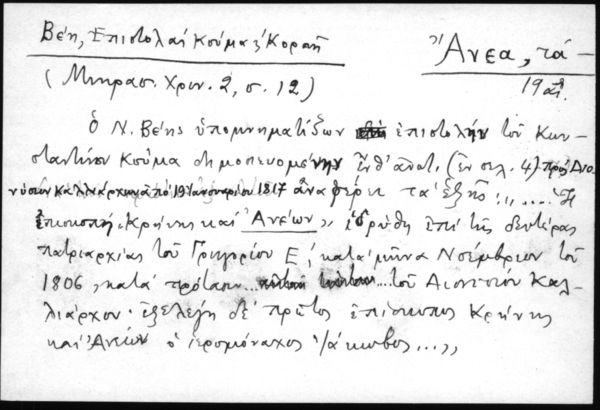 Βέη, Ἐπιστολαὶ Κούμα & Κοραῆ
Ἄνεα, τά –
(Μικρασ. Χρον. 2, σ. 12)
19 αἰ.
Ὁ Ν. Βέης ὑπομνηματίζων ἐπιστολὴν τοῦ Κων-
σταντίνου Κούμα δημοσιευομένην ἐνθ' ἀνωτ. (ἐν σελ. 4) πρὸς Διο-
νύσιον Καλλιάρχην ἀπὸ 19 Ἰανουαρίου 1817 ἀναφέρει τὰ ἑξῆς: ,,.... Ἡ
ἐπισκοπὴ ,,Κρήνης καὶ Ἀνέων,, ἱδρύθη ἐπὶ τῆς δευτέρας
πατριαρχίας τοῦ Γρηγορίου Ε΄, κατὰ μῆνα Νοέμβριον τοῦ
1806, κατὰ πρότασιν ... τοῦ Διονυσίου Καλ-
λιάρχου· ἐξελέγη δὲ πρῶτος ἐπίσκοπος Κρήνης
καὶ Ἀνέων ὁ ἱερομόναχος Ἰάκωβος ...,,